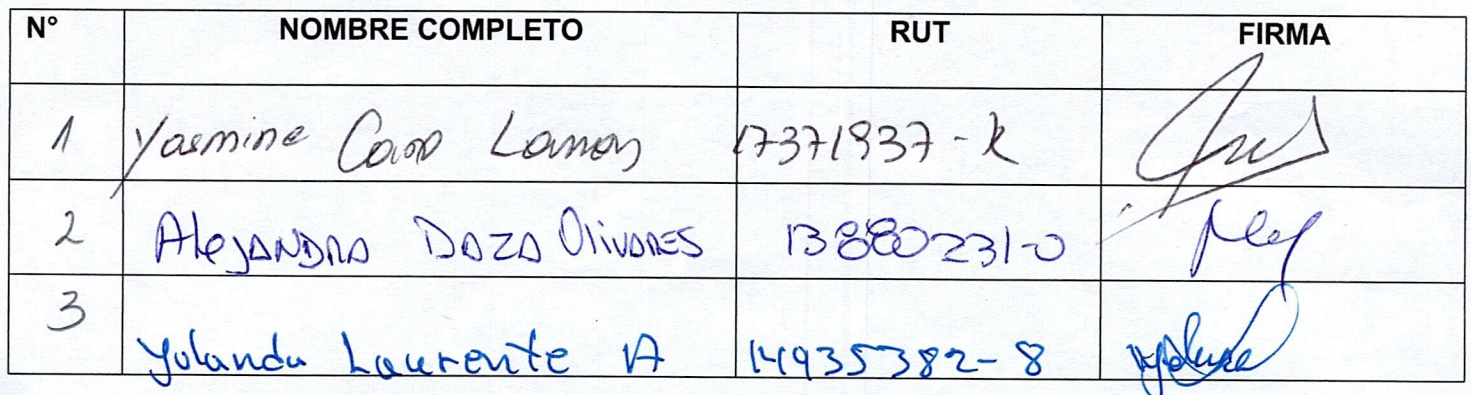 N° NOMBRE COMPLETO RUT FIRMA
1 Yasmine Caro 17371937-k
2 Alejandra Daza Olivares 13880231-0
3 Yolanda Laurente A 14935382-8